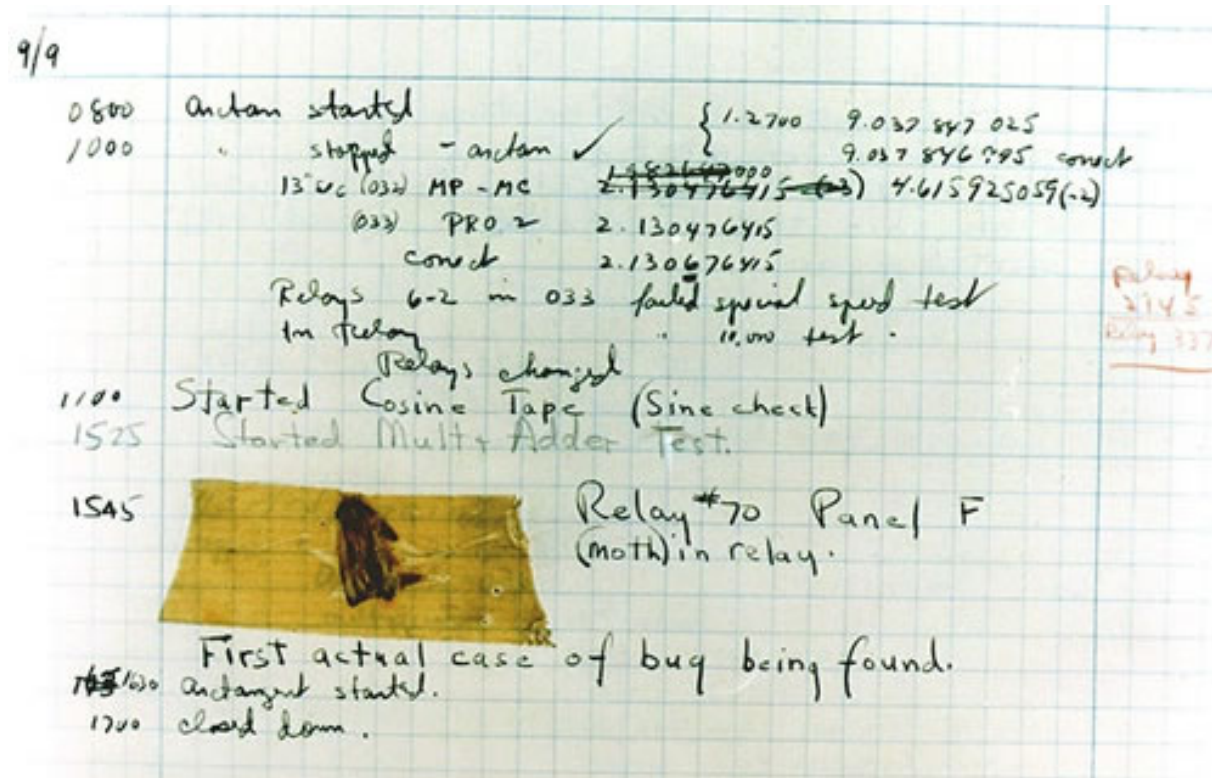 9/9
0800 Antan started { 1.2700 9.037 847 025
1000 " stopped - antan ✓ 9.037 846 795 correct
13"uc (032) MP - MC 2.130476415 4.615925059(-2)
(033) PRO 2 2.130476415
correct 2.130676415
Relays 6-2 in 033 failed special speed test
In Relay " 10,000 test .
Relay
2145
Relay 337
Relays changed
1100 Started Cosine Tape (Sine check)
1525 Started Mult + Adder Test.
1545 Relay #70 Panel F
(moth) in relay.
First actual case of bug being found.
1630 Antangent started.
1700 closed down .